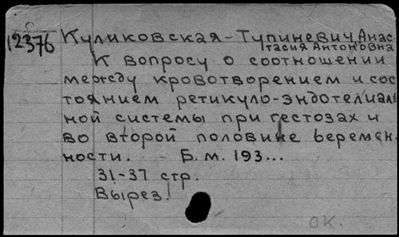 12376 Куликовская-Тупиневич, Анас-
тасия Антоновна
К вопросу о соотношении
между кровотворением и сос-
тоянием ретикуло-эндотелиаль-
ной системы при гестозах и
во второй половине беремен-
ности. - Б.м. 193...
31-37 стр.
Вырез.
ОК.